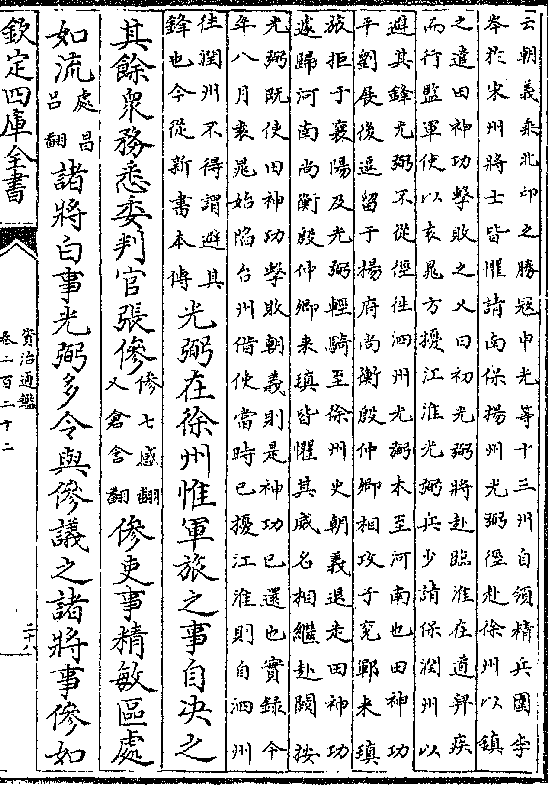 云朝義乘北邙之勝冦申光等十三州自領精兵圍李
岑於宋州將士皆懼請南保揚州光弼徑赴徐州以鎮
之遣田神功擊敗之又曰初光弼將赴臨淮在道舁疾
而行監軍使以袁晁方擾江淮光弼兵少請保潤州以
避其鋒光弼不從徑往泗州光弼本至河南也田神功
平劉展後逗留于揚府尚衡殷仲卿相攻于兗鄆來瑱
旅拒于襄陽及光弼輕騎至徐州史朝義退走田神功
遽歸河南尚衡殷仲卿來瑱皆懼其威名相繼赴闕按
光弼既使田神功擊敗朝義則是神功已還也實録今
年八月袁晁始陷台州借使當時已擾江淮則自泗州
往潤州不得謂避其
鋒也今從新書本傳
光弼在徐州惟軍旅之事自決之
其餘衆務悉委判官張傪
傪七感翻
又倉含翻
傪吏事精敏區處
如流
處昌
吕翻
諸將白事光弼多令與傪議之諸將事傪如
欽定四庫全書
資治通鑑
卷二百二十二
二十八